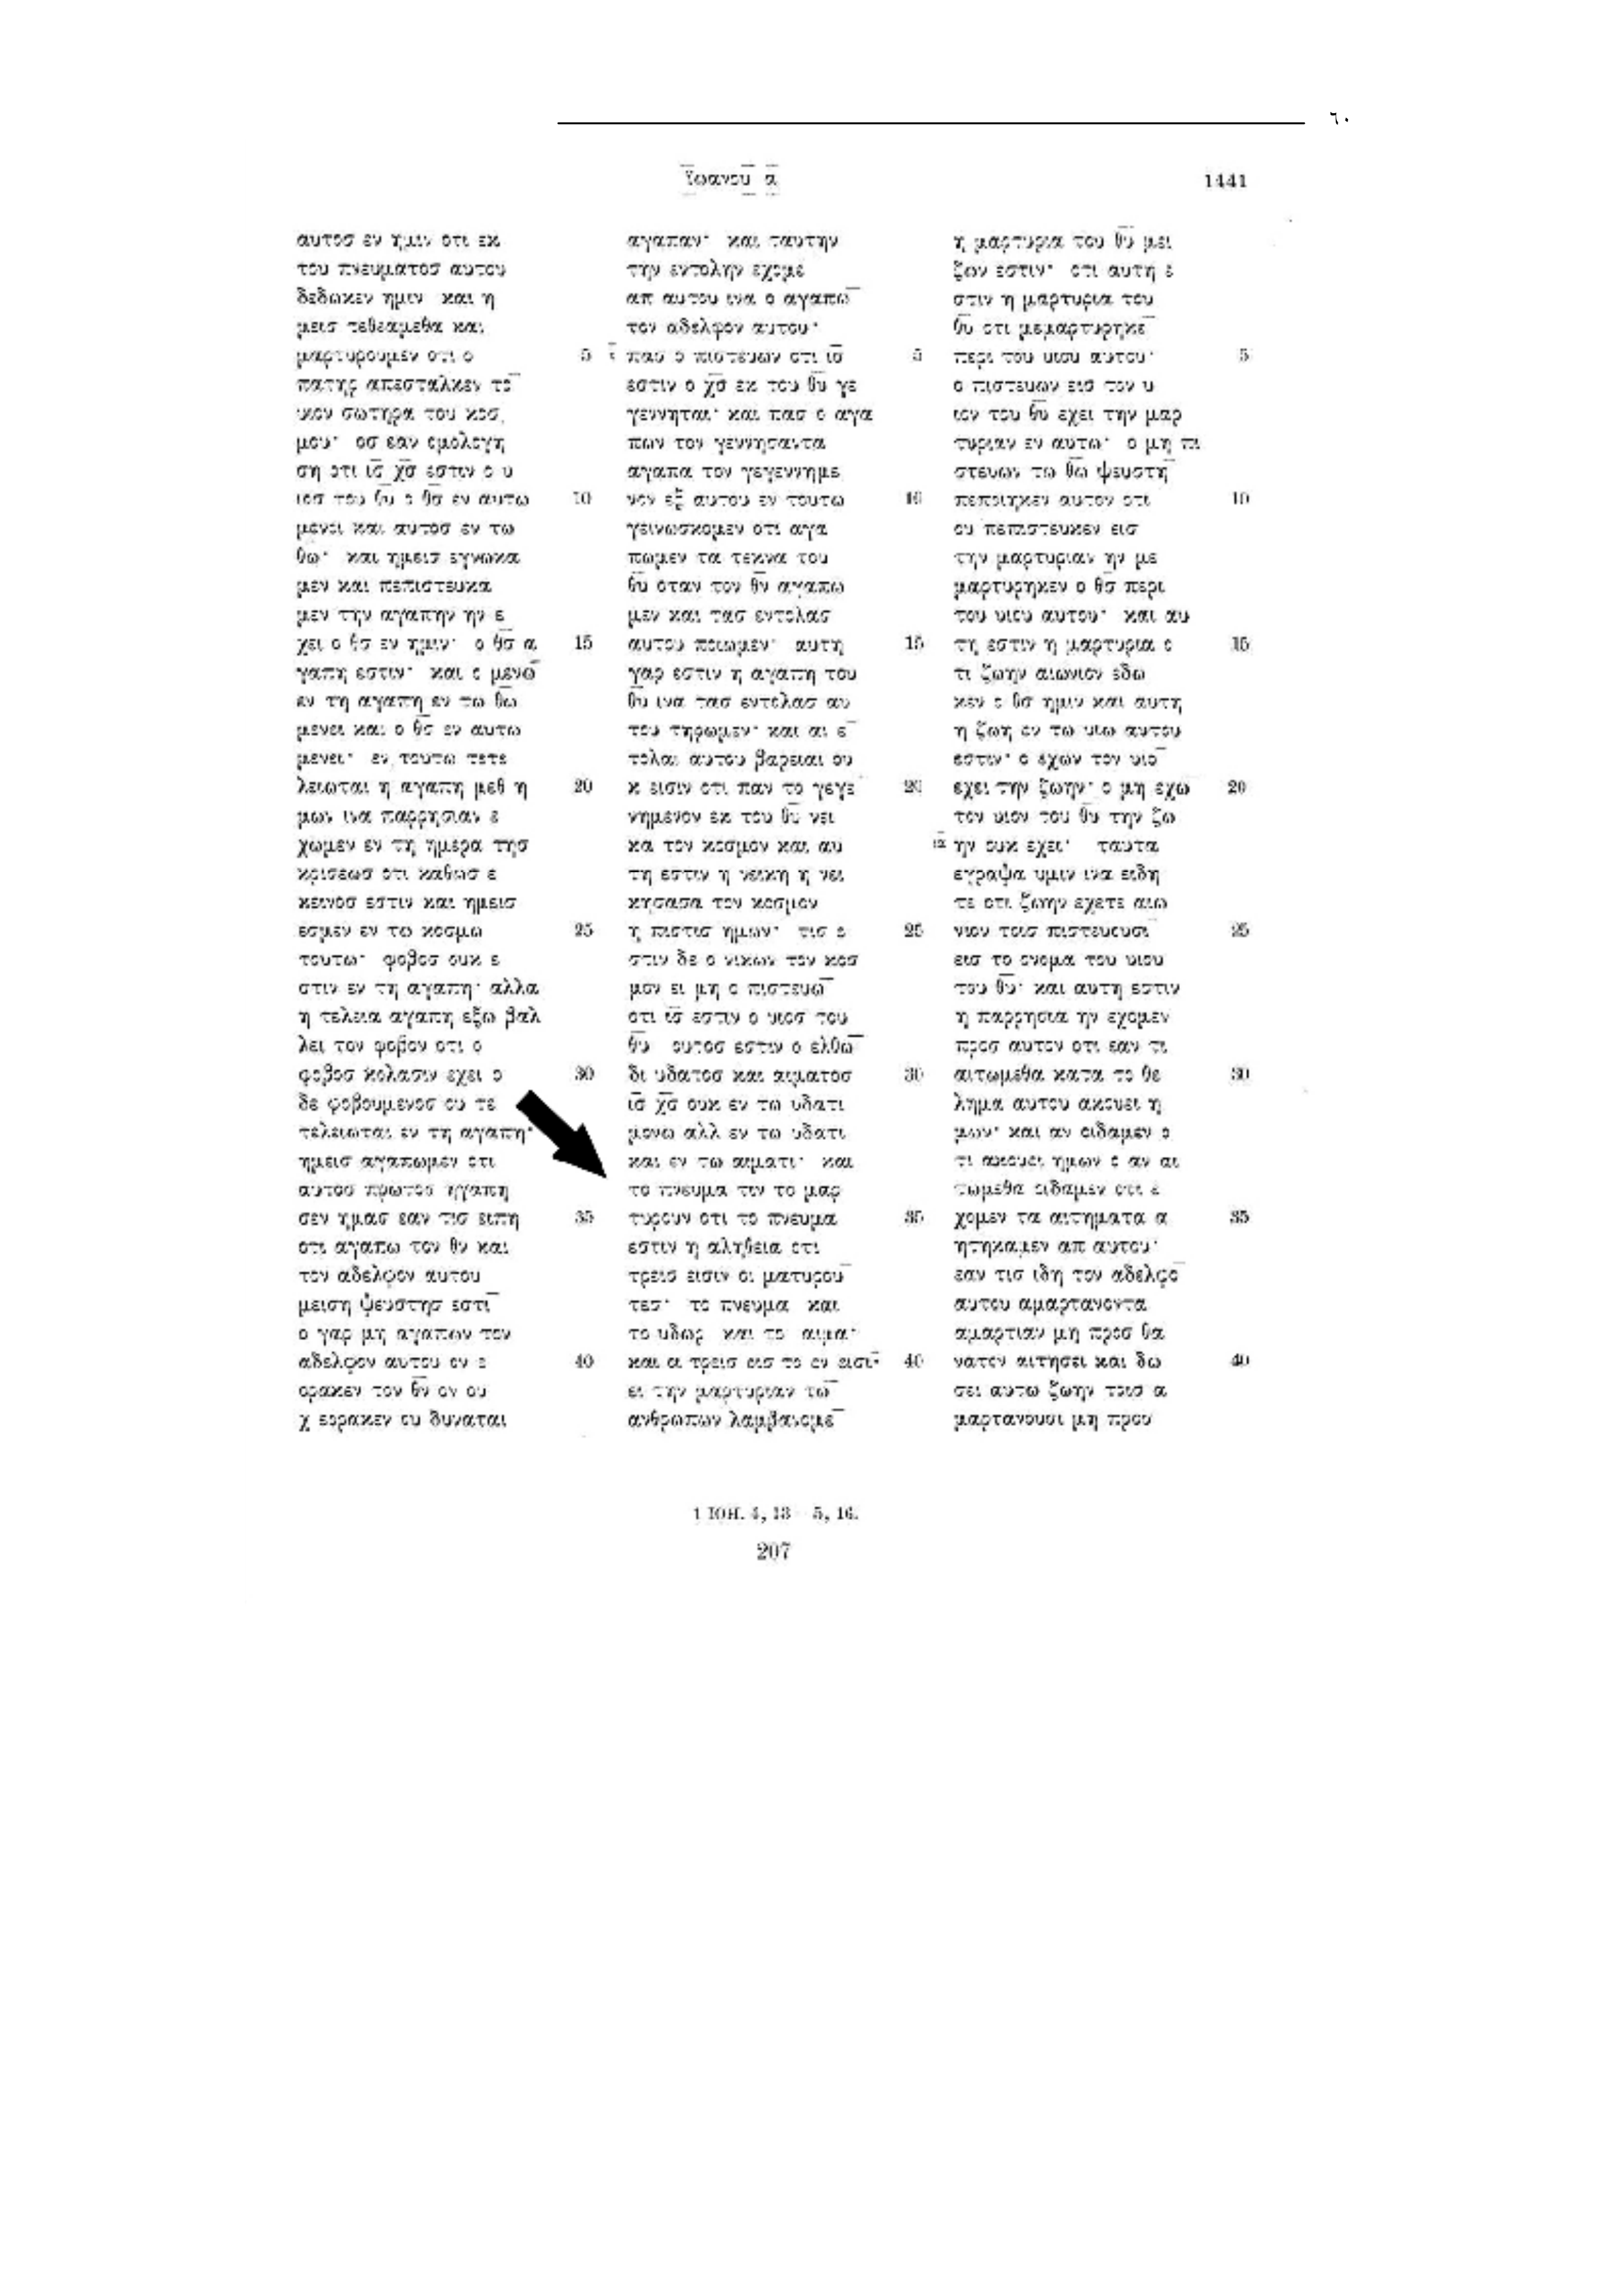 ٦٠
Ϊωανου α
1441
αυτοσ εν ημιν οτι εκ
του πνευματοσ αυτου
δεδωκεν ημιν και η
μεισ τεθεαμεθα και
μαρτυρουμεν οτι ο
πατηρ απεσταλκεν το̅
υιον σωτηρα του κοσ
μου· οσ εαν ομολογη
ση οτι ι̅σ̅ χ̅σ̅ εστιν ο υ
ιοσ του θ̅υ̅ ο θ̅σ̅ εν αυτω
μενει και αυτοσ εν τω
θ̅ω̅· και ημεισ εγνωκα
μεν και πεπιστευκα
μεν την αγαπην ην ε
χει ο θ̅σ̅ εν ημιν· ο θ̅σ̅ α
γαπη εστιν· και ο μενω̅
εν τη αγαπη εν τω θ̅ω̅
μενει και ο θ̅σ̅ εν αυτω
μενει· εν τουτω τετε
λειωται η αγαπη μεθ η
μων ινα παρρησιαν ε
χωμεν εν τη ημερα τησ
κρισεωσ οτι καθωσ ε
κεινοσ εστιν και ημεισ
εσμεν εν τω κοσμω
τουτω· φοβοσ ουκ ε
στιν εν τη αγαπη· αλλα
η τελεια αγαπη εξω βαλ
λει τον φοβον οτι ο
φοβοσ κολασιν εχει ο
δε φοβουμενοσ ου τε
τελειωται εν τη αγαπη·
ημεισ αγαπωμεν οτι
αυτοσ πρωτοσ ηγαπη
σεν ημασ εαν τισ ειπη
οτι αγαπω τον θ̅ν̅ και
τον αδελφον αυτου
μειση ψευστησ εστι̅
ο γαρ μη αγαπων τον
αδελφον αυτου ον ε
ορακεν τον θ̅ν̅ ον ου
χ εορακεν ου δυναται
αγαπαν· και ταυτην
την εντολην εχομε
απ αυτου ινα ο αγαπω̅
τον αδελφον αυτου·
5 πασ ο πιστευων οτι ι̅σ̅
εστιν ο χ̅σ̅ εκ του θ̅υ̅ γε
γεννηται· και πασ ο αγα
πων τον γεννησαντα
αγαπα τον γεγεννημε
10 νον εξ αυτου εν τουτω
γεινωσκομεν οτι αγα
πωμεν τα τεκνα του
θ̅υ̅ οταν τον θ̅ν̅ αγαπω
μεν και τασ εντολασ
15 αυτου ποιωμεν· αυτη
γαρ εστιν η αγαπη του
θ̅υ̅ ινα τασ εντολασ αυ
του τηρωμεν· και αι ε̅
τολαι αυτου βαρειαι ου
20 κ εισιν οτι παν το γεγε
νημενον εκ του θ̅υ̅ νει
κα τον κοσμον και αυ
τη εστιν η νεικη η νει
κησασα τον κοσμον
25 η πιστισ ημων· τισ ε
στιν δε ο νικων τον κοσ
μον ει μη ο πιστευω̅
οτι ι̅σ̅ εστιν ο υιοσ του
θ̅υ̅ ουτοσ εστιν ο ελθω̅
30 δι υδατοσ και αιματοσ
ι̅σ̅ χ̅σ̅ ουκ εν τω υδατι
μονω αλλ εν τω υδατι
και εν τω αιματι· και
το πνευμα τιν το μαρ
35 τυρουν οτι το πνευμα
εστιν η αληθεια οτι
τρεισ εισιν οι ματυρου̅
τεσ· το πνευμα και
το υδωρ και το αιμα·
40 και οι τρεισ εισ το εν εισι·
ει την μαρτυριαν τω̅
ανθρωπων λαμβανομε̅
η μαρτυρια του θ̅υ̅ μει
ζων εστιν· οτι αυτη ε
στιν η μαρτυρια του
θ̅υ̅ οτι μεμαρτυρηκε̅
5 περι του υιου αυτου· 5
ο πιστευων εισ τον υ
ιον του θ̅υ̅ εχει την μαρ
τυριαν εν αυτω· ο μη πι
στευων τω θ̅ω̅ ψευστη̅
10 πεποιηκεν αυτον οτι 10
ου πεπιστευκεν εισ
την μαρτυριαν ην με
μαρτυρηκεν ο θ̅σ̅ περι
του υιου αυτου· και αυ
15 τη εστιν η μαρτυρια ο 15
τι ζωην αιωνιον εδω
κεν ο θ̅σ̅ ημιν και αυτη
η ζωη εν τω υιω αυτου
εστιν· ο εχων τον υιο̅
20 εχει την ζωην· ο μη εχω 20
τον υιον του θ̅υ̅ την ζω
ην ουκ εχει· ταυτα
εγραψα υμιν ινα ειδη
τε οτι ζωην εχετε αιω
25 νιον τοισ πιστευουσι̅ 25
εισ το ονομα του υιου
του θ̅υ̅· και αυτη εστιν
η παρρησια ην εχομεν
προσ αυτον οτι εαν τι
30 αιτωμεθα κατα το θε 30
λημα αυτου ακουει η
μων· και αν οιδαμεν ο
τι ακουει ημων ο αν αι
τωμεθα οιδαμεν οτι ε
35 χομεν τα αιτηματα α 35
ητηκαμεν απ αυτου·
εαν τισ ιδη τον αδελφο̅
αυτου αμαρτανοντα
αμαρτιαν μη προσ θα
40 νατον αιτησει και δω 40
σει αυτω ζωην τοισ α
μαρτανουσι μη προσ
1 IOH. 4, 13 – 5, 16.
207